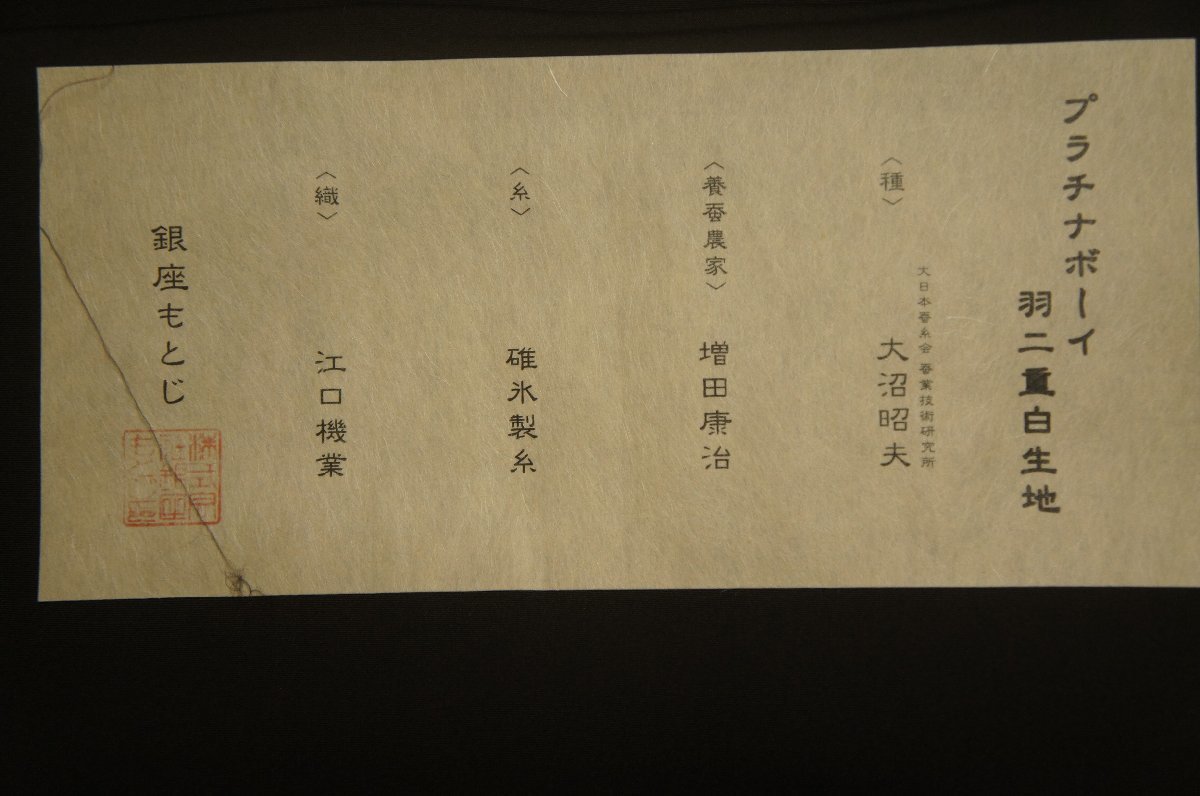 プラチナボーイ
羽二重白生地
〈種〉
大日本蚕糸会 蚕業技術研究所
大沼昭夫
〈養蚕農家〉
増田康治
〈糸〉
碓氷製糸
〈織〉
江口機業
銀座もとじ